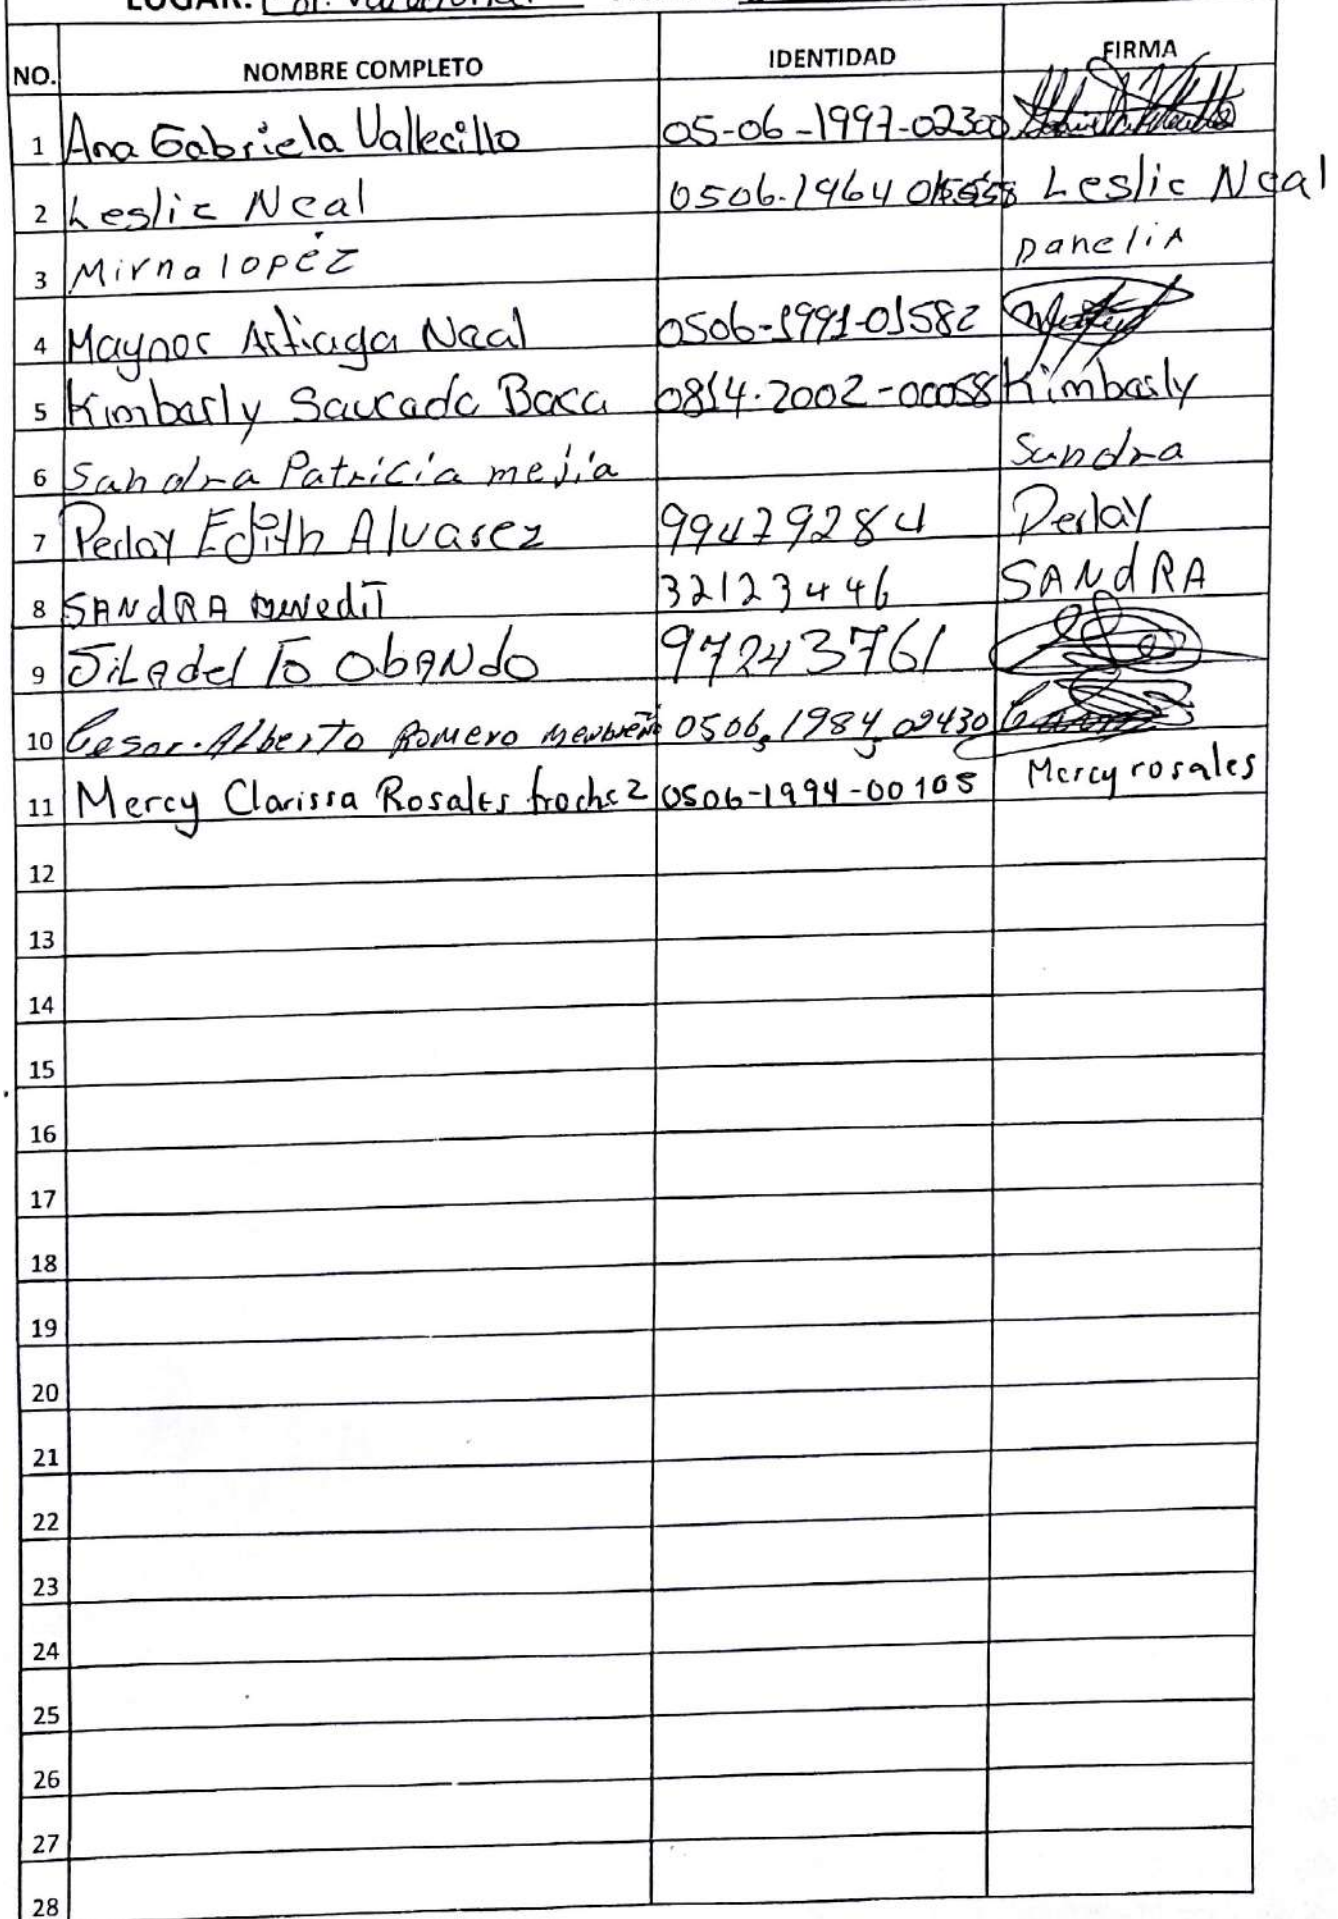 LUGAR: Col.
NO. NOMBRE COMPLETO IDENTIDAD FIRMA
1 Ana Gabriela Vallecillo 05-06-1997-02300
2 Leslie Neal 0506.1964 Leslie Neal
3 Mirna lopéz DaneliA
4 Maynor Artiaga Neal 0506-1991-01582
5 Kimbarly Saucada Baca 0814.2002-00058 Kimbarly
6 Sandra Patricia mejia Sandra
7 Perlay Edith Alvarez 99479284 Perlay
8 SANdRA 32123446 SANdRA
9 ObANdo 97243761
10 Cesar. Alberto Romero 0506,1984,02430
11 Mercy Clarissa Rosales 0506-1994-00105 Mercy rosales
12
13
14
15
16
17
18
19
20
21
22
23
24
25
26
27
28